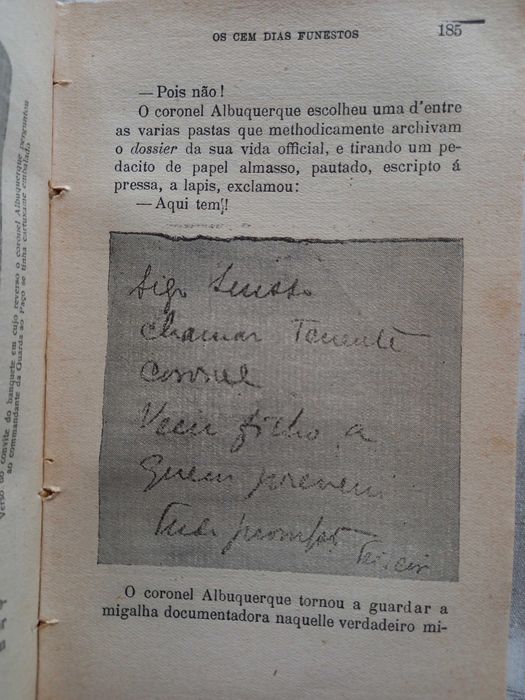 OS CEM DIAS FUNESTOS 185
—Pois não!
O coronel Albuquerque escolheu uma d'entre
as varias pastas que methodicamente archivam
o dossier da sua vida official, e tirando um pe-
dacito de papel almasso, pautado, escripto á
pressa, a lapis, exclamou:
—Aqui tem!!
chamar Tenente
Coronel
Veiu filho a
quem preveni
Tudo prompto
O coronel Albuquerque tornou a guardar a
migalha documentadora naquelle verdadeiro mi-
Verso do convite do banquete em cujo reverso o coronel Albuquerque perguntou
ao commandante da Guarda ao Paço se tinha cartuxame embalado